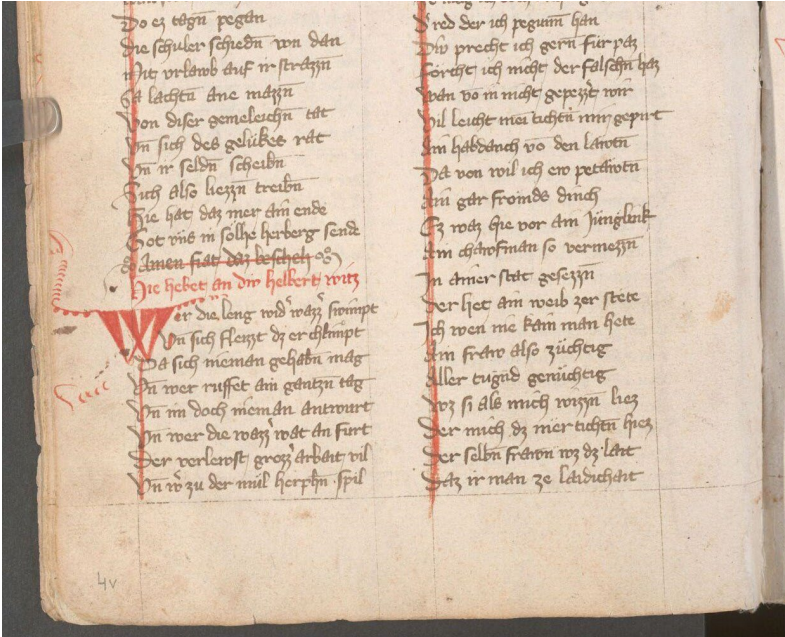 Do ez tagn pegan
Die schuler schiedn von dan
Mit vrlawb auf ir strazzn
Sa lachtn ane mazzn
Von diser gemeleichn tat
Vn sich des gelükes rat
Vn ir seldn scheibn
Sich also liezzn treibn
Hie hat daz mer ain ende
Got vns in sölhe herberg sende
Amen fiat daz bescheh
Hie hebet an div helbert witz
Wer die leng wid wazz swimpt
Vn sich fleizzt dz er chlimpt
Da sich nieman gehabn mag
Vn wer ruffet ain gantzn tag
Vn im doch nieman antwurt
Vn wer die wazz wat an furt
Der verlewst grozz arbait vil
Vn w zu der mül herphn spil
red der ich pegunn han
Div precht ich gern für paz
Förcht ich nicht der falschn haz
Wan vo in nicht gepezzt wir
Vil leicht mei tichtn mir gepirt
Ain habdanch vo den lawtn
Da von wil ich ew petawtn
Ain gar froinds dinch
Ez waz hie vor ain Jünglink
Ain chawfman so vermezzn
In ainer stat gesezzn
Der het ain weib zer stete
Ich wen nie kain man hete
Ain fraw also züchtig
Aller tugnd genüchtig
Wz si als mich wizzn liez
Der mich dz mer tichtn hiez
Der selbn frawn wz dz lait
Daz ir man ze laidichait
4v